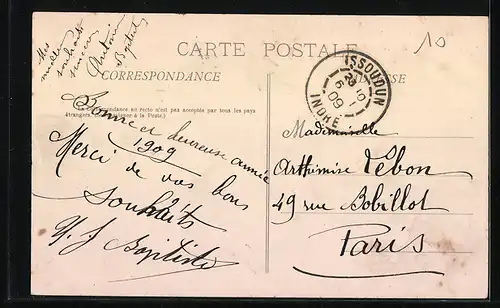 Mes
meilleurs
souhaits
sincères
Antoine
Baptiste
10
CARTE POSTALE
CORRESPONDANCE
ISSOUDUN
INDRE
6 -1
09
pondance au recto n'est pas acceptée par tous les pays
étrangers.
à la Poste.)
Bonne et heureuse année
1909
Merci de vos bons
souhaits
Baptiste
Mademoiselle
Arthimise Lebon
49 rue Bobillot
Paris